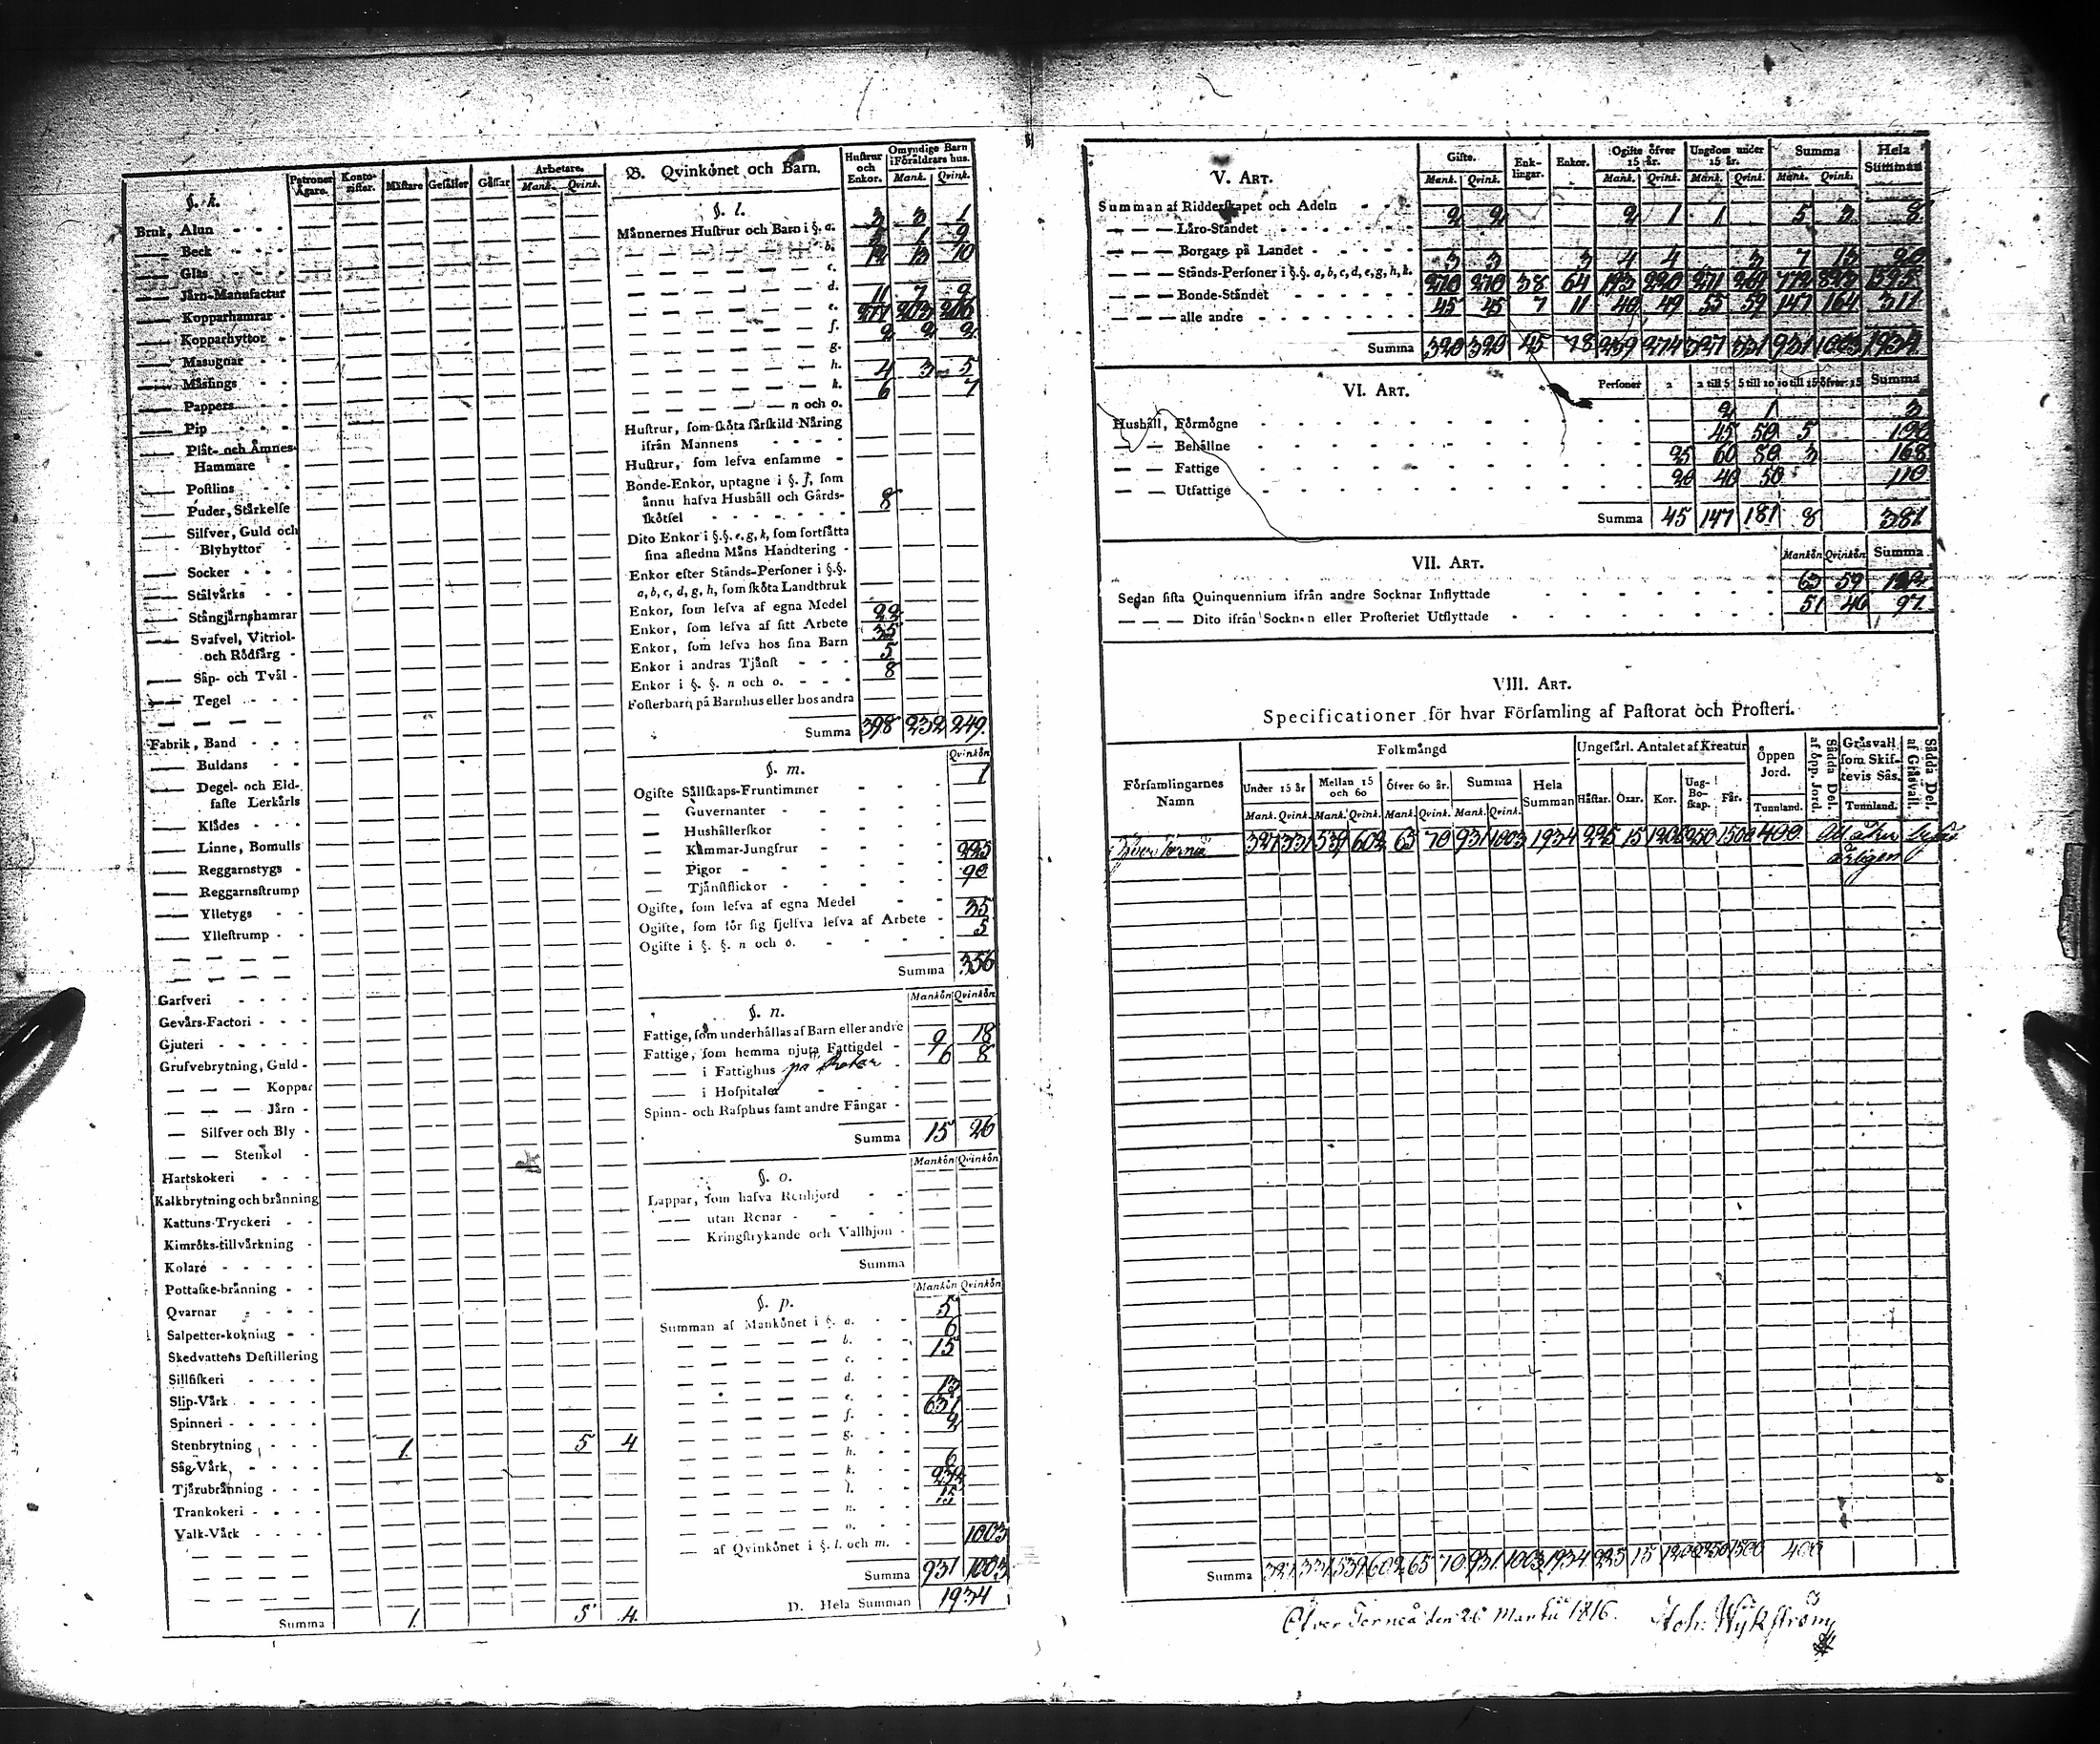 §. k.
Patroner Ägare. Konto-rister. Mästare Gesäller Gåssar Arbetare. Mank. Qvink.
Bruk, Alun
Beck
Glas
Järn-Manufactur
Kopparhamrar
Kopparhyttor
Masugnar
Mässings
Pappers
Pip
Plåt- och Ämnes-
Hammare
Postlins
Puder, Stärkelse
Silfver, Guld och
Blyhyttor
Socker
Stålvärks
Stångjärnshamrar
Svafvel, Vitriol-
och Rödfärg
Såp- och Tvål
Tegel
Fabrik, Band
Buldans
Degel- och Eld-
faste Lerkärls
Klädes
Linne, Bomulls
Reggarnstygs
Reggarnstrump
Ylletygs
Yllestrump
Garfveri
Gevärs-Factori
Gjuteri
Grufvebrytning, Guld
— — — Koppar
— — — Järn
— Silfver och Bly
— — Stenkol
Hartskokeri
Kalkbrytning och bränning
Kattuns-Tryckeri
Kimröks-tillvärkning
Kolare
Pottaske-bränning
Qvarnar
Salpetter-kokning
Skedvattens Destillering
Sillfiskeri
Slip-Värk
Spinneri
Stenbrytning 1 5 4
Såg-Värk
Tjärubränning
Trankokeri
Valk-Värk
Summa 1. 5 4
B. Qvinkönet och Barn. Hustrur och Enkor. Omyndige Barn i Föräldrars hus. Mank. Qvink.
§. l.
Männernes Hustrur och Barn i §. a. 3 3 1
b. 5 1 9
c. 12 13 10
d.
e. 11 7 9
f. 277 203 206
g. 2 2 2
h.
k. 4 3 5
n och o. 6 7
Hustrur, som sköta särskild Näring
ifrån Mannens
Hustrur, som lefva ensamme
Bonde-Enkor, uptagne i §. f, som
ännu hafva Hushåll och Gårds-
skötsel 8
Dito Enkor i §.§. e, g, k, som fortsätta
sina afledna Mäns Handtering
Enkor efter Stånds-Personer i §.§.
a, b, c, d, g, h, som sköta Landtbruk
Enkor, som lefva af egna Medel 22
Enkor, som lefva af sitt Arbete 35
Enkor, som lefva hos sina Barn 5
Enkor i andras Tjänst 8
Enkor i §. §. n och o.
Fosterbarn på Barnhus eller hos andra
Summa 398 232 249.
Qvinkön
§. m. 1
Ogifte Sällskaps-Fruntimmer
— Guvernanter
— Hushållerskor
— Kammar-Jungfrur
— Pigor 225
— Tjänstflickor 90
Ogifte, som lefva af egna Medel
Ogifte, som för sig sjelfva lefva af Arbete 35
Ogifte i §. §. n och o. 5
Summa 356
Mankön Qvinkön
§. n.
Fattige, som underhållas af Barn eller andre 9 18
Fattige, som hemma njuta Fattigdel 6 8
—— i Fattighus
—— i Hospitaler
Spinn- och Rasphus samt andre Fångar
Summa 15 26
Mankön Qvinkön
§. o.
Lappar, som hafva Renhjord
—— utan Renar
—— Kringstrykande och Vallhjon
Summa
Mankön Qvinkön
§. p.
Summan af Mankönet i §. a. 5
b. 6
c. 15
d.
e. 13
f. 631
g. 2
h.
k. 6
l. 232
n. 15
o.
— af Qvinkönet i §. l. och m. 1003
Summa 931 1003
D. Hela Summan 1934
V. Art. Gifte. Enk-lingar. Enkor. Ogifte öfver 15 år. Ungdom under 15 år. Summa Hela Summan
Mank. Qvink. Mank. Qvink. Mank. Qvink. Mank. Qvink.
Summan af Ridderskapet och Adeln
— — — Läro-Ståndet 2 2 2 1 1 5 3 8
— — — Borgare på Landet
— — — Stånds-Personer i §.§. a, b, c, d, e, g, h, k. 3 3 3 4 4 3 7 13 20
— — — Bonde-Ståndet 270 270 38 64 193 220 271 269 772 823 1595
— — — alle andre 45 45 7 11 40 49 55 59 147 164 311
Summa 320 320 45 78 239 274 327 331 931 1003 1934
VI. Art. Personer 2 2 till 5 5 till 10 10 till 15 öfver 15 Summa
Hushåll, Förmögne 2 1 3
— — Behållne 45 50 5 100
— — Fattige 25 60 80 3 168
— — Utfattige 20 40 50 110
Summa 45 147 181 8 381
VII. Art. Mankön Qvinkön Summa
Sedan sista Quinquennium ifrån andre Socknar Inflyttade 63 59 122
— — — Dito ifrån Socknen eller Prosteriet Utflyttade 51 46 97
VIII. Art.
Specificationer för hvar Församling af Pastorat och Prosteri.
Församlingarnes Namn Folkmängd Ungefärl. Antalet af Kreatur Öppen Jord. Sådda Del. af öpp. Jord. Gräsvall som Skif-tevis Sås. Sådda Del. af Gräsvall.
Under 15 år Mellan 15 och 60 Öfver 60 år. Summa Hela Summan Hästar. Oxar. Kor. Ung-Bo-skap. Får. Tunnland. Tunnland.
Mank. Qvink. Mank. Qvink. Mank. Qvink. Mank. Qvink.
Öfver Torneå 327 331 539 602 65 70 931 1003 1934 225 15 1200 250 1500 400
årligen
Summa 327 331 539 602 65 70 931 1003 1934 225 15 1200 250 1500 400
Öfver Torneå den 26 Martii 1816. Joh: Wykström